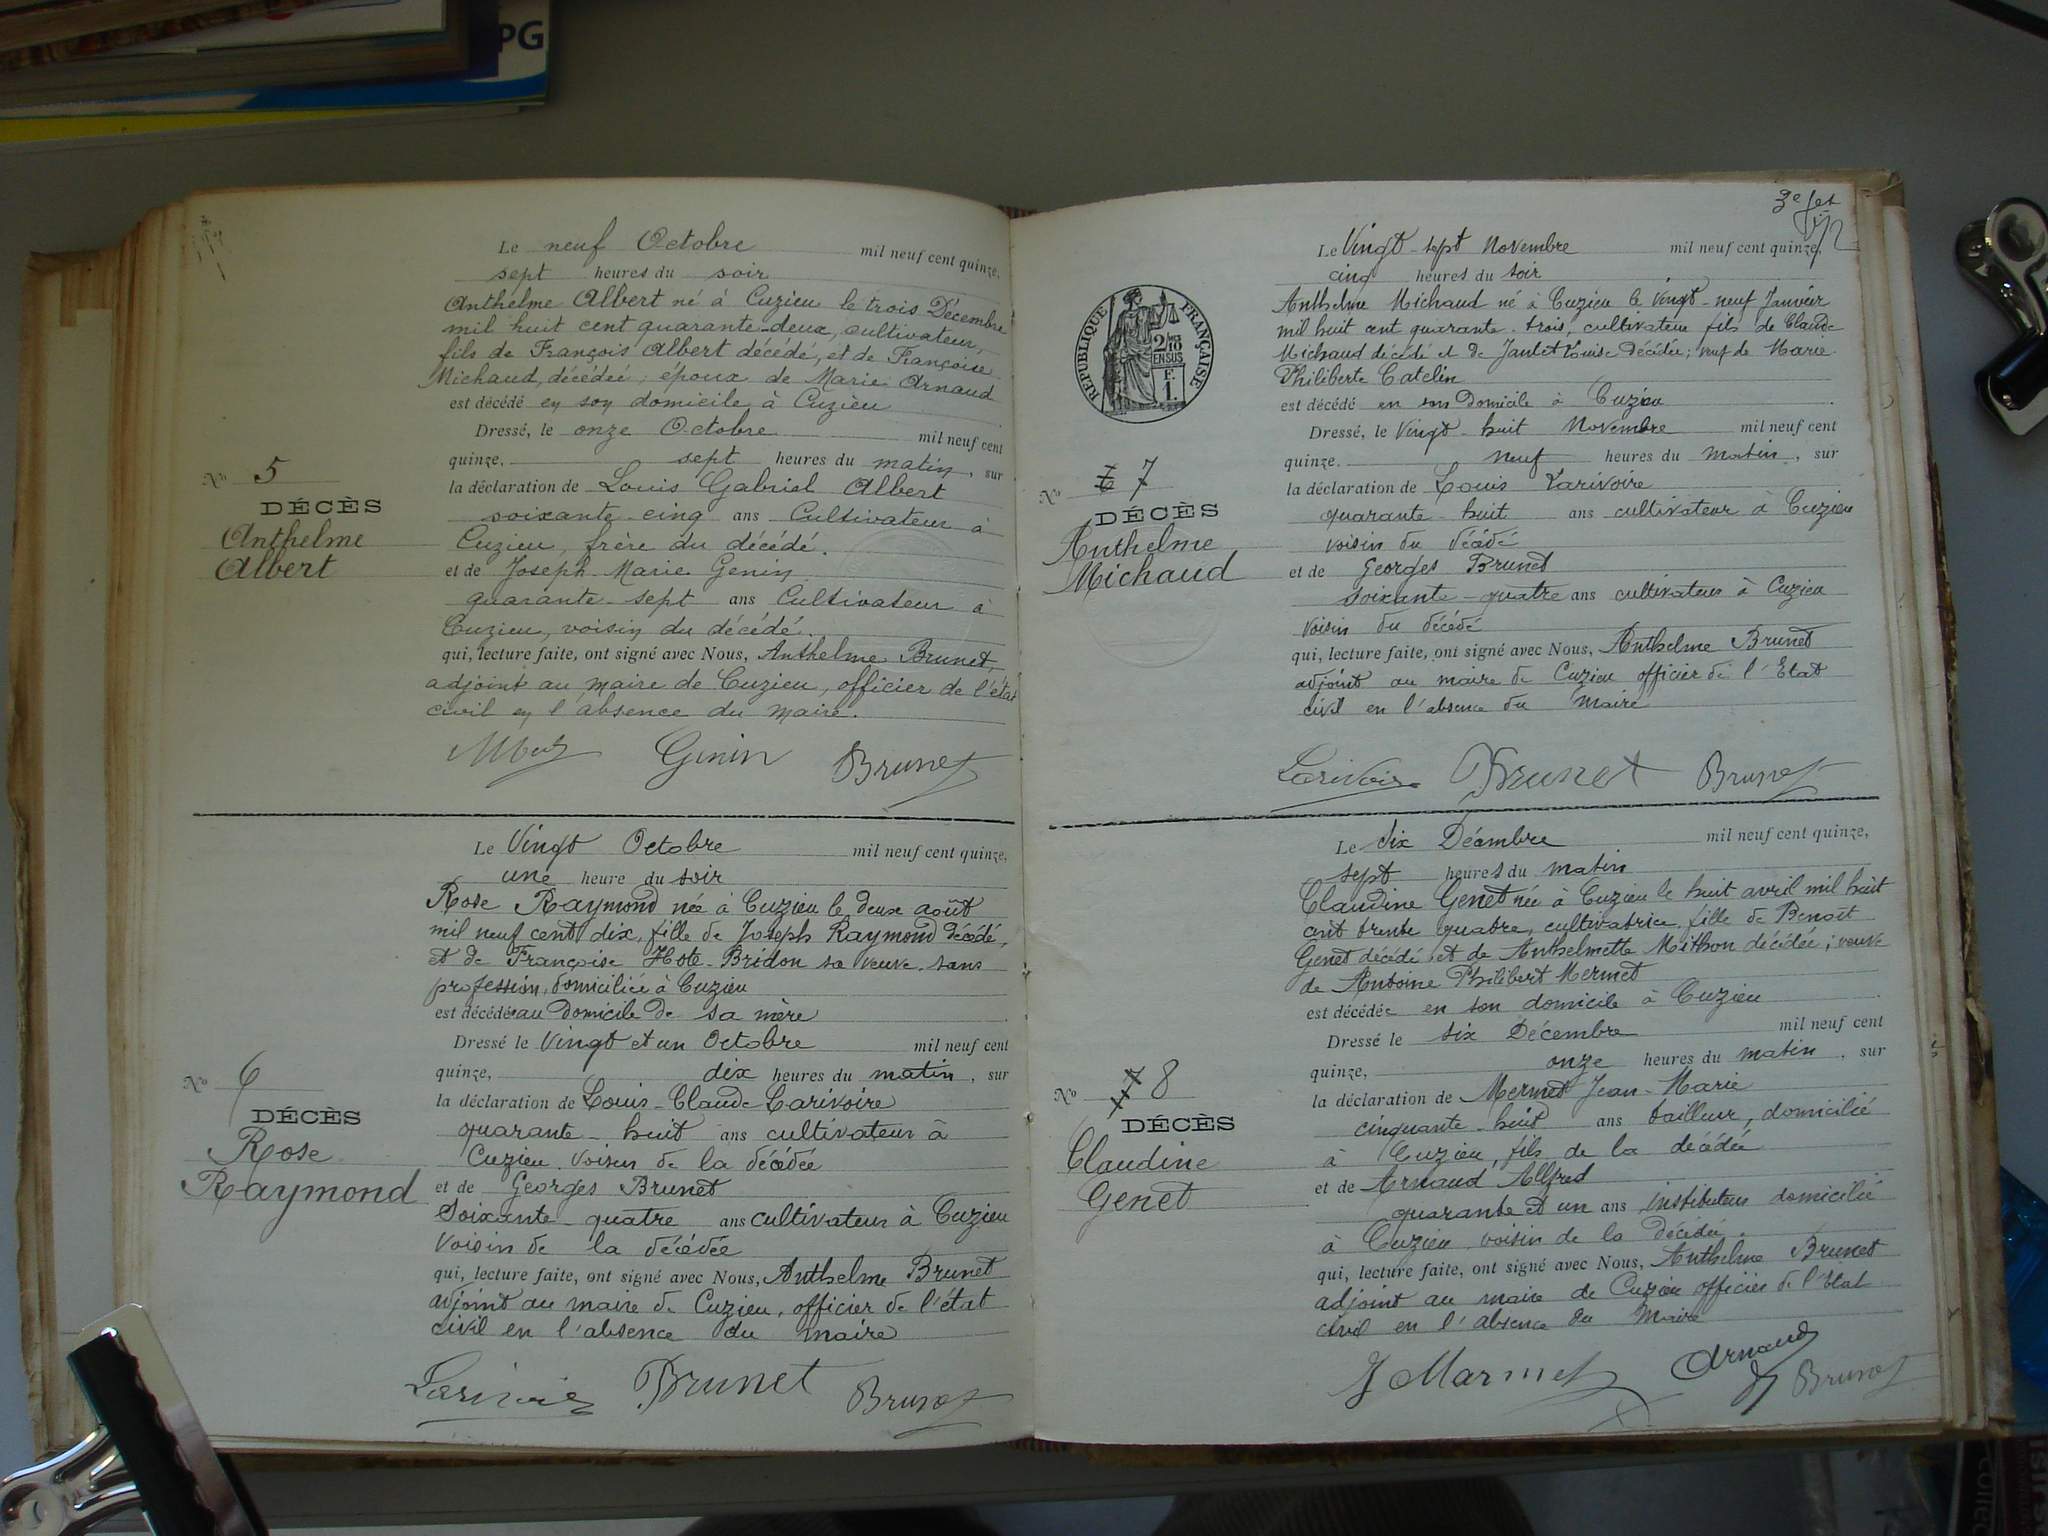 PG
Le neuf Octobre mil neuf cent quinze,
sept heures du soir
Anthelme Albert né à Cuzieu le trois Décembre
mil huit cent quarante-deux, cultivateur,
fils de François Albert décédé, et de Françoise
Michaud, décédée; époux de Marie Arnaud
est décédé en son domicile à Cuzieu
Dressé, le onze Octobre mil neuf cent
quinze, sept heures du matin, sur
la déclaration de Louis Gabriel Albert
soixante-cinq ans Cultivateur à
Cuzieu, frère du décédé.
et de Joseph Marie Genin
quarante-sept ans Cultivateur à
Cuzieu, voisin du décédé.
qui, lecture faite, ont signé avec Nous, Anthelme Brunet,
adjoint au maire de Cuzieu, officier de l'état
civil en l'absence du maire.
No 5
DÉCÈS
Anthelme
Albert
Genin Brunet
Le Vingt Octobre mil neuf cent quinze,
une heure du soir
Rose Raymond née à Cuzieu le deux août
mil neuf cent dix, fille de Joseph Raymond décédé,
et de Françoise Hote-Bridon sa veuve, sans
profession, domiciliée à Cuzieu
est décédée au domicile de sa mère
Dressé le Vingt et un Octobre mil neuf cent
quinze, dix heures du matin, sur
la déclaration de Louis-Claude Larivoire
quarante-huit ans cultivateur à
Cuzieu voisin de la décédée
et de Georges Brunet
Soixante-quatre ans cultivateur à Cuzieu
Voisin de la décédée
qui, lecture faite, ont signé avec Nous, Anthelme Brunet
adjoint au maire de Cuzieu, officier de l'état
civil en l'absence du maire
No 6
DÉCÈS
Rose
Raymond
Larivoire Brunet Brunet
3e
Le Vingt-sept Novembre mil neuf cent quinze,
cinq heures du soir
Anthelme Michaud né à Cuzieu le Vingt-neuf Janvier
mil huit cent quarante-trois, cultivateur fils de Claude
Michaud décédé et de Janlet Louise décédée; veuf de Marie
Philiberte Catelin
est décédé en son Domicile à Cuzieu
Dressé, le Vingt-huit Novembre mil neuf cent
quinze, neuf heures du matin, sur
la déclaration de Louis Larivoire
quarante-huit ans cultivateur à Cuzieu
voisin du décédé
et de Georges Brunet
soixante-quatre ans cultivateur à Cuzieu
Voisin du décédé
qui, lecture faite, ont signé avec Nous, Anthelme Brunet
adjoint au maire de Cuzieu officier de l'Etat
civil en l'absence du Maire
RÉPUBLIQUE FRANÇAISE
2/10
EN SUS
F.
1.
No 6 7
DÉCÈS
Anthelme
Michaud
Larivoire Brunet Brunet
Le Six Décembre mil neuf cent quinze,
sept heures du matin
Claudine Genet née à Cuzieu le huit avril mil huit
cent trente quatre, cultivatrice, fille de Benoît
Genet décédé et de Anthelmette Mithon décédée; veuve
de Antoine Philibert Mermet
est décédée en son domicile à Cuzieu
Dressé le six Décembre mil neuf cent
quinze, onze heures du matin, sur
la déclaration de Mermet Jean-Marie
cinquante-huit ans tailleur, domicilié
à Cuzieu, fils de la décédée
et de Arnaud Alfred
quarante et un ans instituteur domicilié
à Cuzieu voisin de la décédée.
qui, lecture faite, ont signé avec Nous, Anthelme Brunet
adjoint au maire de Cuzieu officier de l'Etat
civil en l'absence du Maire
No 7 8
DÉCÈS
Claudine
Genet
J Marmet Arnaud Brunet